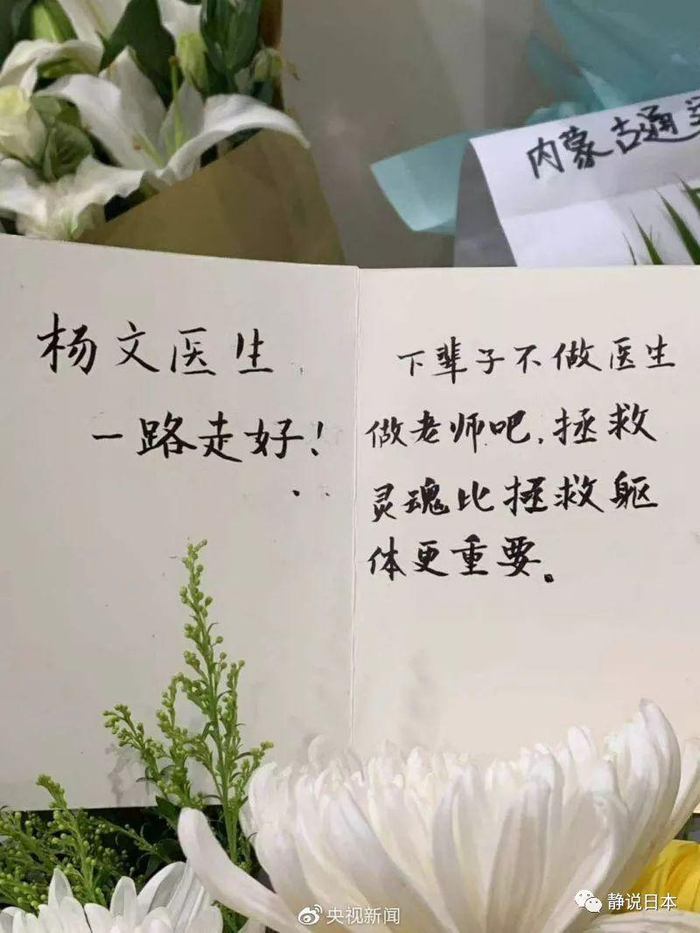 内蒙古通
杨文医生
一路走好!
下辈子不做医生
做老师吧,拯救
灵魂比拯救躯
体更重要。
央视新闻
静说日本